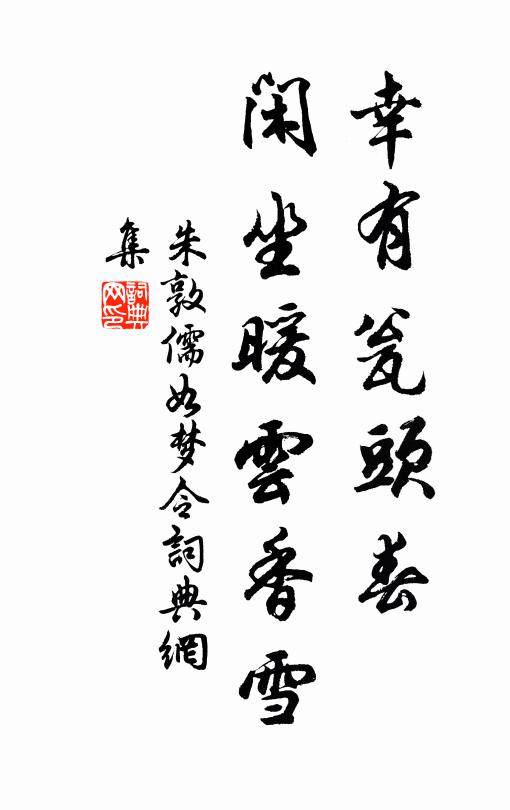 幸有瓮頭春
閑坐暖雲香雪
朱敦儒如梦令詞典網
集
詞典网印